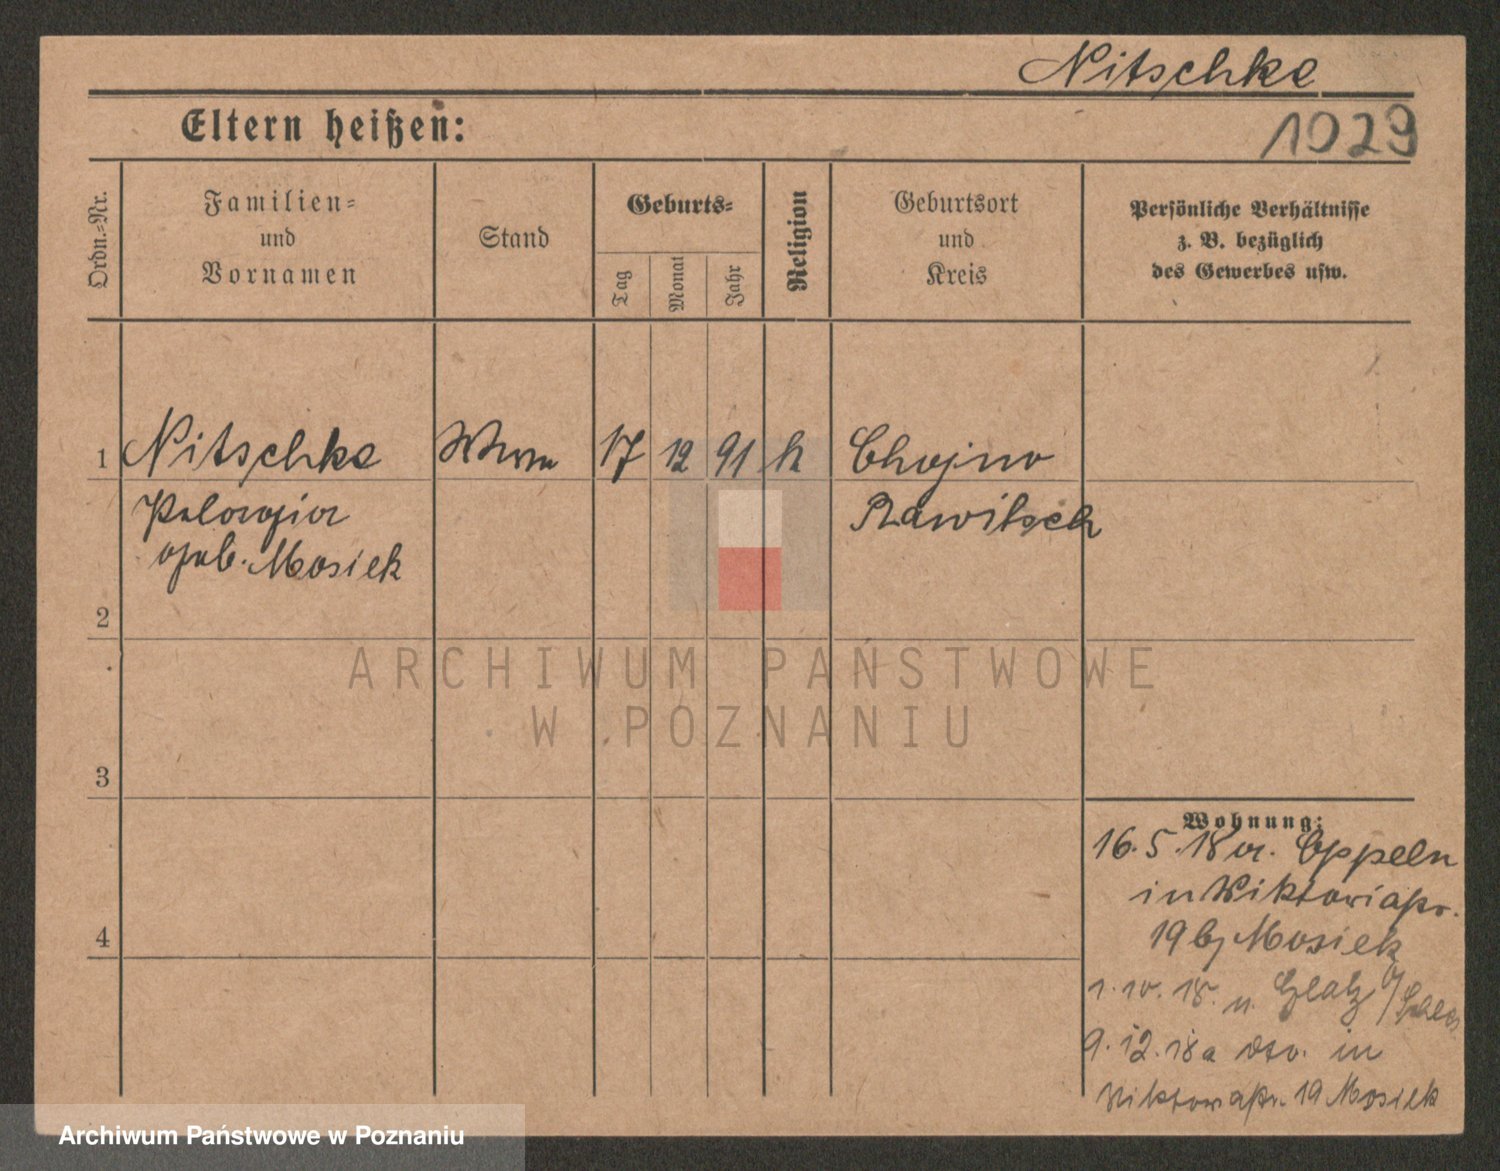 Nitschke
1929
Eltern heißen:
Ordn.-Nr.
Familien-
und
Vornamen
Stand
Geburts-
Tag
Monat
Jahr
Religion
Geburtsort
und
Kreis
Persönliche Verhältnisse
z. B. bezüglich
des Gewerbes usw.
1 Nitschke 17 12 91 k Chojno
Pelagia Rawitsch
geb. Mosiek
2
3
4
ARCHIWUM PAŃSTWOWE
W POZNANIU
Wohnung:
16.5.18 a. Oppeln
in Viktoriastr.
19 bei Mosiek
1.10.18. n. Glatz
9.12.18 a dto. in
Viktoriastr. 19 Mosiek
Archiwum Państwowe w Poznaniu